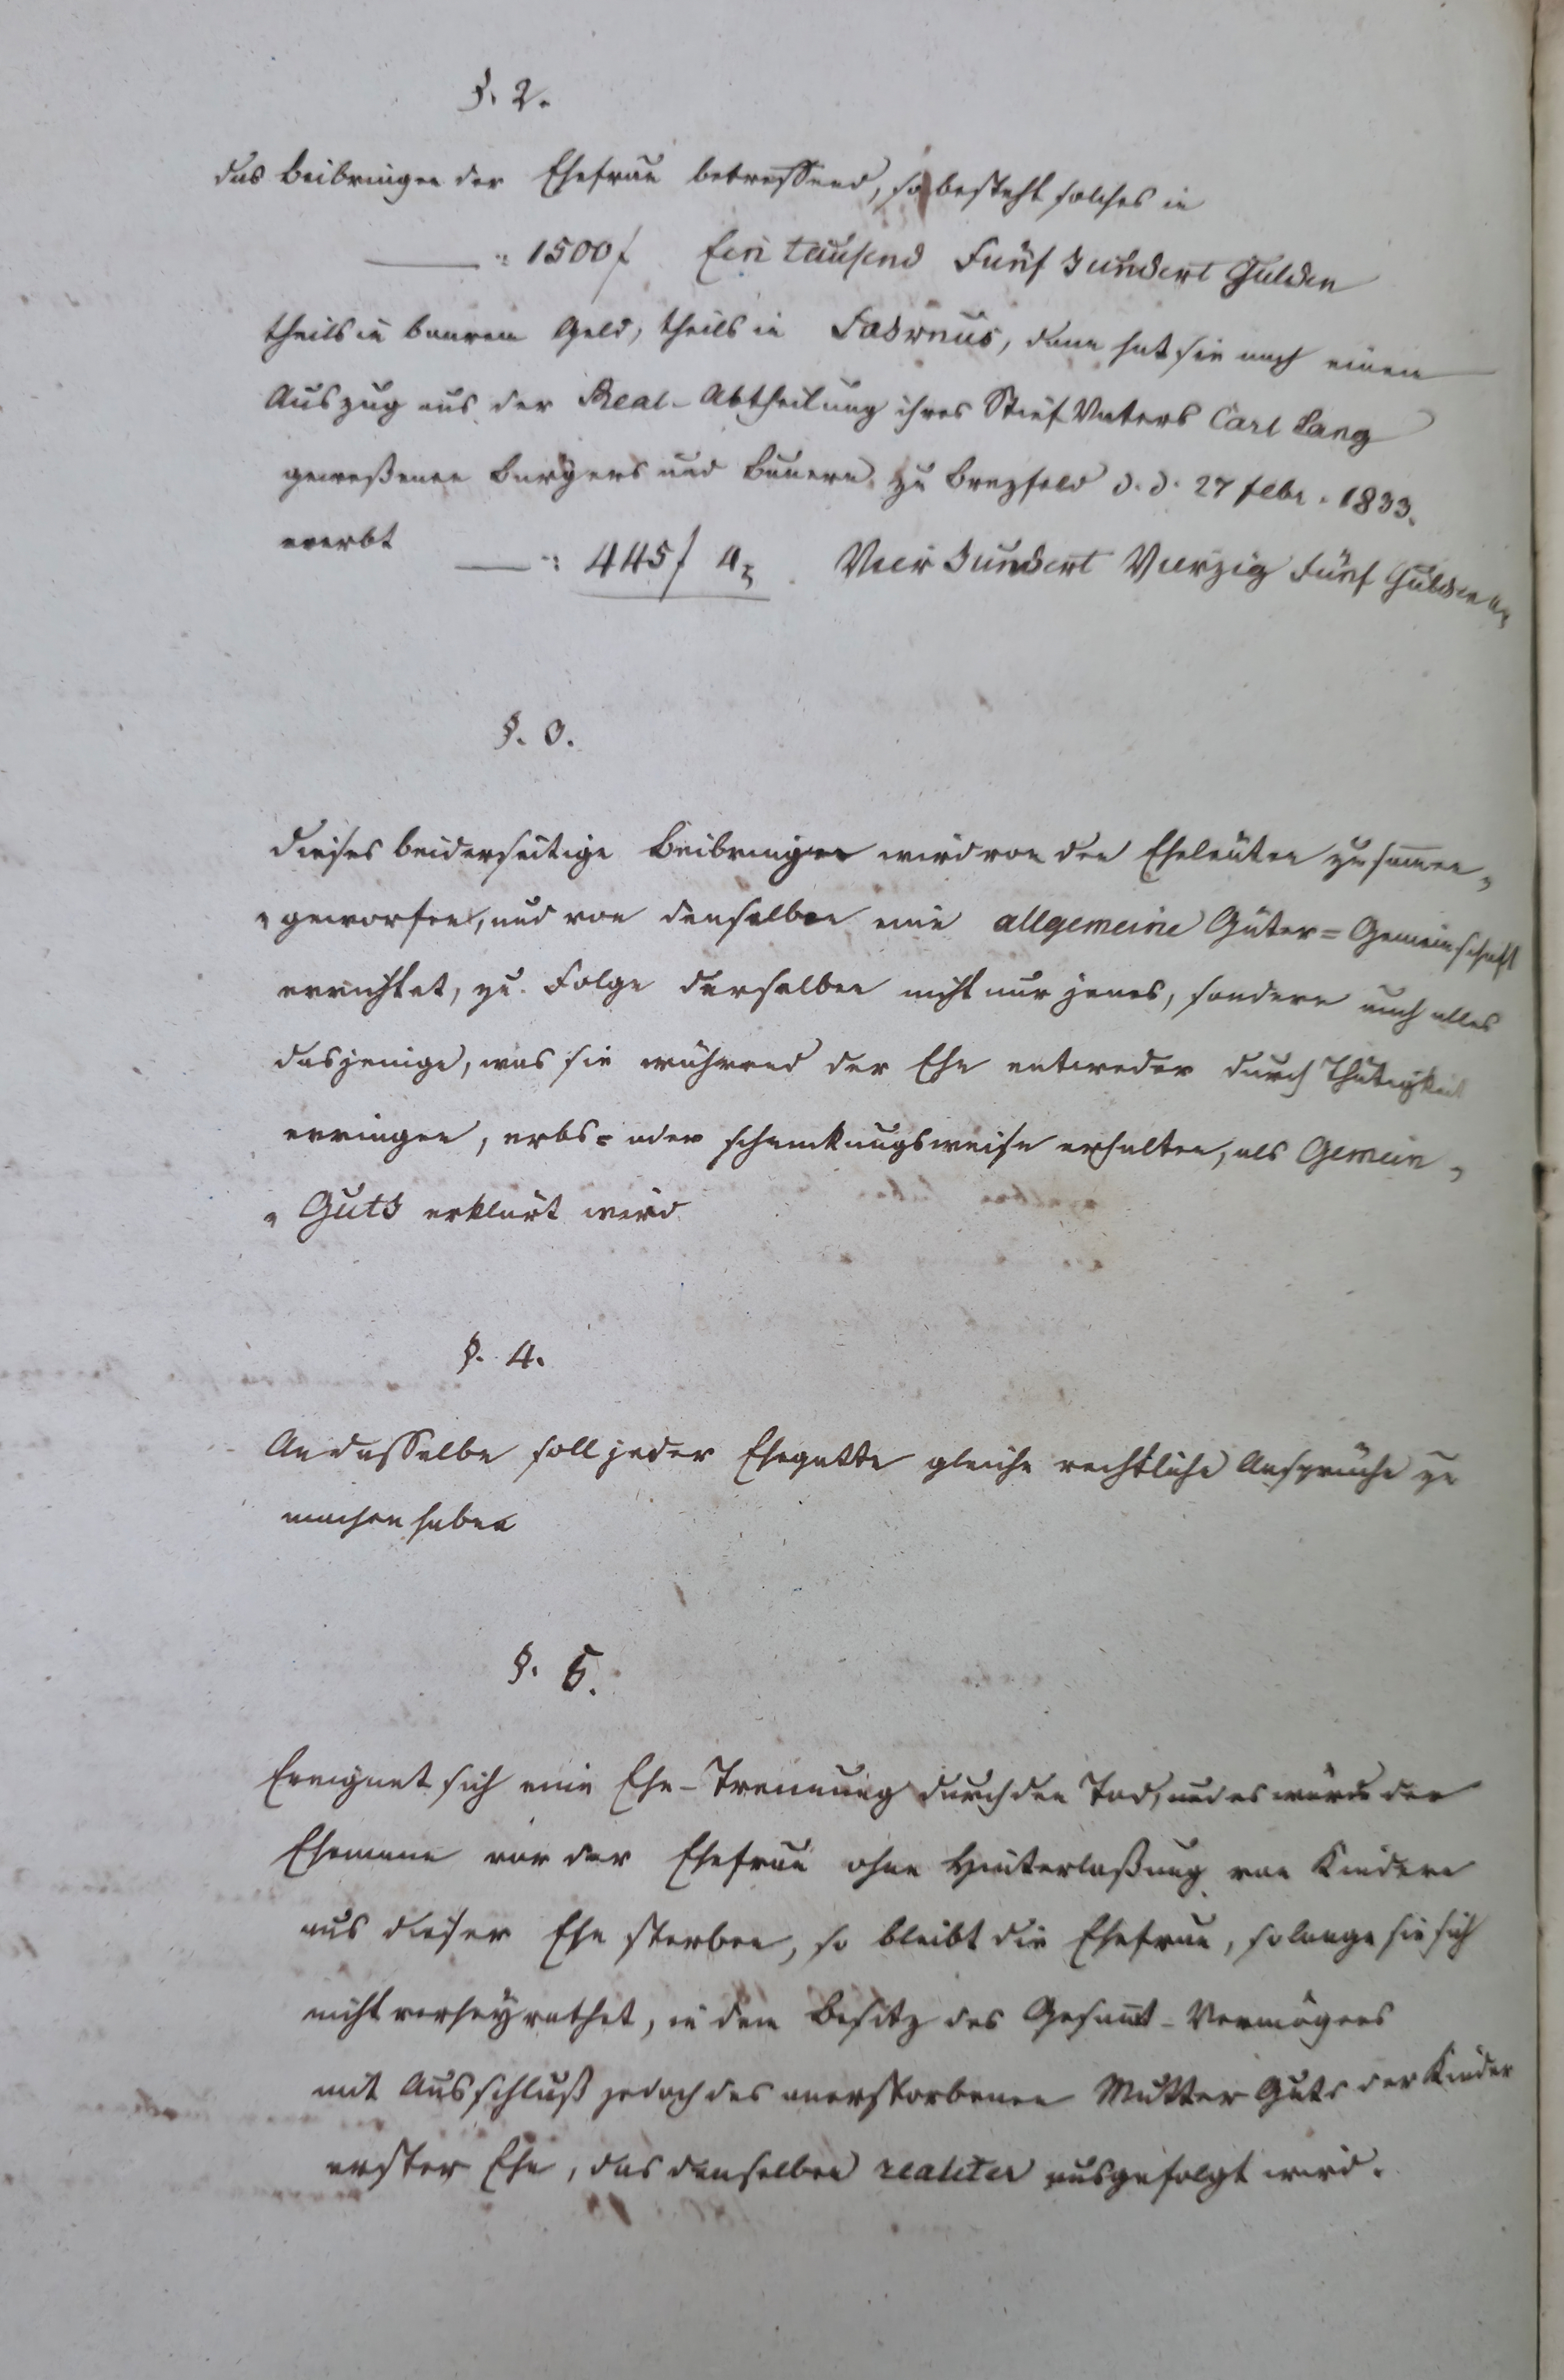 §. 2.
das Beibringen der Ehefrau betreffend, so besteht solches in
—— „: 1500 f Ein tausend Fünf Hundert Gulden
theils in baarem Geld, theils in Fahrnus, dann hat sie nach einem
Auszug aus der Real-Abtheilung ihres Stief Vaters Carl Lang
geweßenen Burgers und Bauern zu Brezfeld d. d. 27 febr. 1833.
ererbt —— „: 445 f 4 x Vier Hundert Vierzig Fünf Gulden 4 x
§. 3.
Dieses beiderseitige Beibringen wird von den Eheleuten zusamen„
„geworfen, und von denselben eine allgemeine Güter=Gemeinschaft
errichtet, zu Folge derselben nicht nur jenes, sondern auch alles
dasjenige, was sie während der Ehe entweder durch Thätigkeit
erringen, erbs= oder schenkungsweise erhalten, als Gemein„
„Guth erklärt wird
§. 4.
An dasselbe soll jeder Ehegatte gleiche rechtliche Ansprüche zu
machen haben
§. 5.
Ereignet sich eine Ehe-Trennung durch den Tod, und es würde der
Ehemann vor der Ehefrau ohne Hinterlaßung von Kindern
aus dieser Ehe sterben, so bleibt die Ehefrau, solange sie sich
nicht verheyrathet, in dem Besitz des Gesamt-Vermögens
mit Ausschluß jedoch des anerstorbenen Mutter Guts der Kinder
erster Ehe, das denselben realiter ausgefolgt wird.